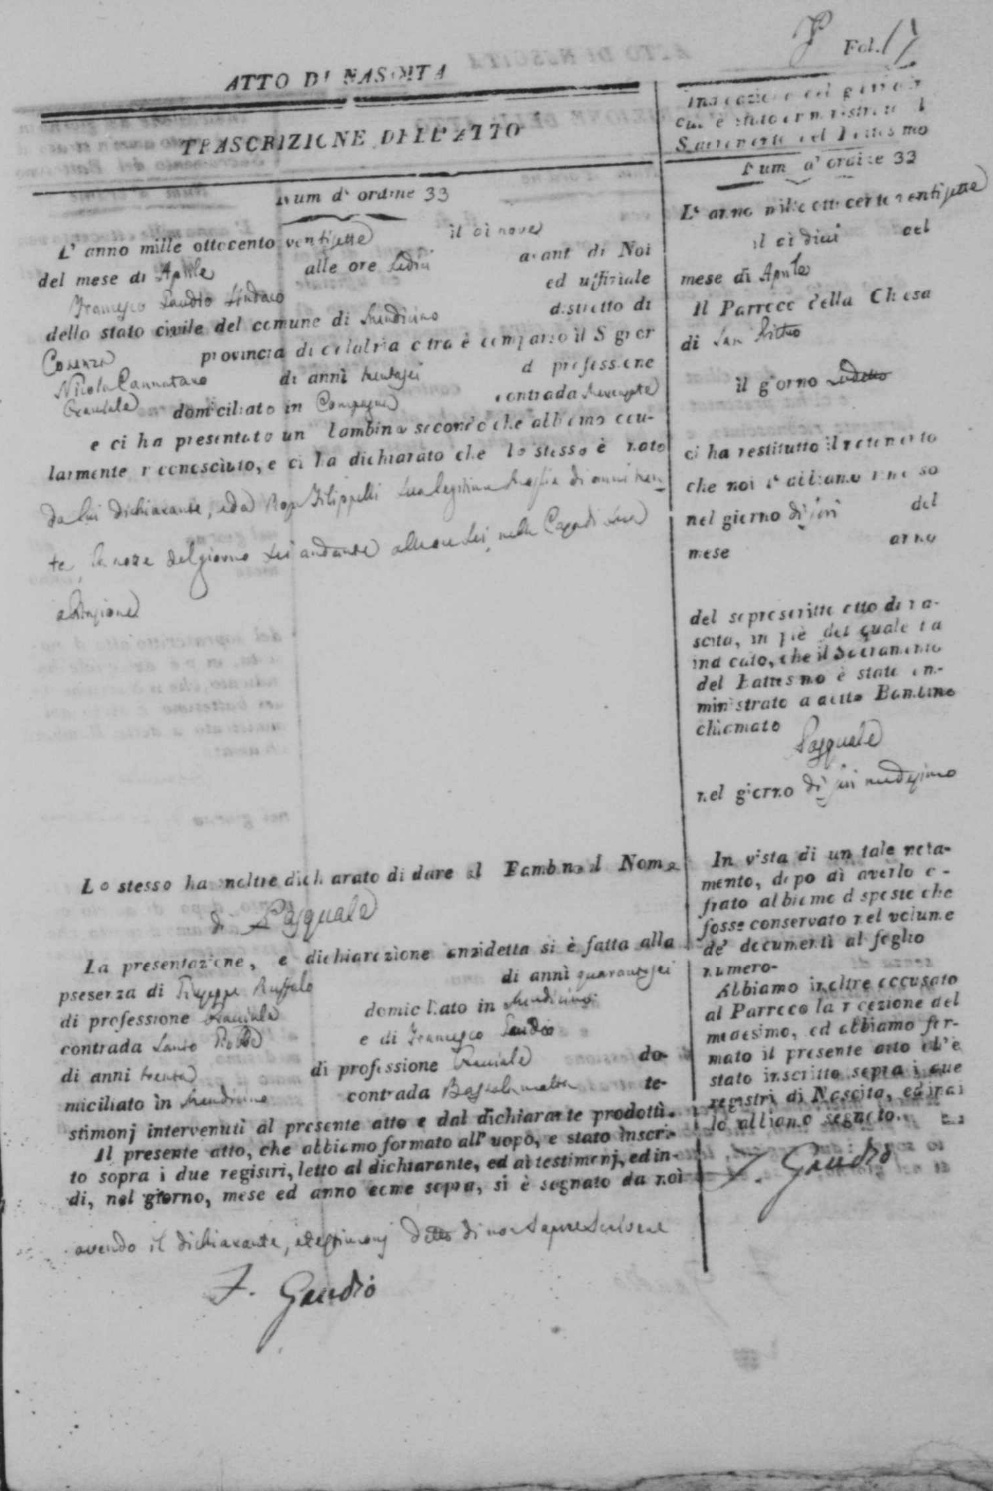 Fol. 17
ATTO DI NASCITA
TRASCRIZIONE DELL'ATTO
Num d' ordine 33
L' anno mille ottocento ventisette il di nove
del mese di Aprile alle ore sedici avanti di Noi
Francesco Gaudio Sindaco ed uffiziale
dello stato civile del comune di Mendicino distretto di
Cosenza provincia di calabria citra è comparso il Signor
Nicola Cannataro di anni trentasei di professione
Bracciale domiciliato in contrada
e ci ha presentato un bambino secondo che abbiamo ocu-
larmente riconosciuto, e ci ha dichiarato che lo stesso è nato
da lui dichiarante, e da Rosa Filippelli sua legittima moglie di anni tren-
ta, le nove del giorno sei andante alle ore sei, nella Casa di sua
abitazione
Lo stesso ha inoltre dichiarato di dare al Bambino il Nome
di Pasquale
La presentazione, e dichiarazione anzidetta si è fatta alla
presenza di Giuseppe Ruffolo di anni quarantasei
di professione Bracciale domiciliato in Mendicino
contrada Santo e di Francesco Gaudio
di anni trenta di professione Bracciale do-
miciliato in Mendicino contrada te-
stimonj intervenuti al presente atto e dal dichiarante prodotti.
Il presente atto, che abbiamo formato all' uopo, e stato inscri-
to sopra i due registri, letto al dichiarante, ed ai testimonj, ed in-
di, nel giorno, mese ed anno come sopra, si è segnato da noi
avendo il dichiarante, e testimonj detto di non sapere scrivere
F. Gaudio
Indicazione del giorno in
cui è stato amministrato il
Sacramento del Battesimo
Num d' ordine 33
L' anno mille ottocento ventisette
il di dieci del
mese di Aprile
Il Parroco della Chiesa
di San Pietro
il giorno
ci ha restituito il notamento
che noi l' abbiamo rimesso
nel giorno di jeri del
mese anno
del soprascritto atto di na-
scita, in piè del quale ha
indicato, che il Sacramento
del Battesimo è stato am-
ministrato a detto Bambino
chiamato
Pasquale
nel giorno di jeri medesimo
In vista di un tale nota-
mento, dopo di averlo ci-
frato abbiamo disposto che
fosse conservato nel volume
de' documenti al foglio
numero-
Abbiamo inoltre accusato
al Parroco la ricezione del
medesimo, ed abbiamo for-
mato il presente atto ch'è
stato inscritto sopra i due
registri di Nascita, ed indi
lo abbiamo segnato.
F. Gaudio